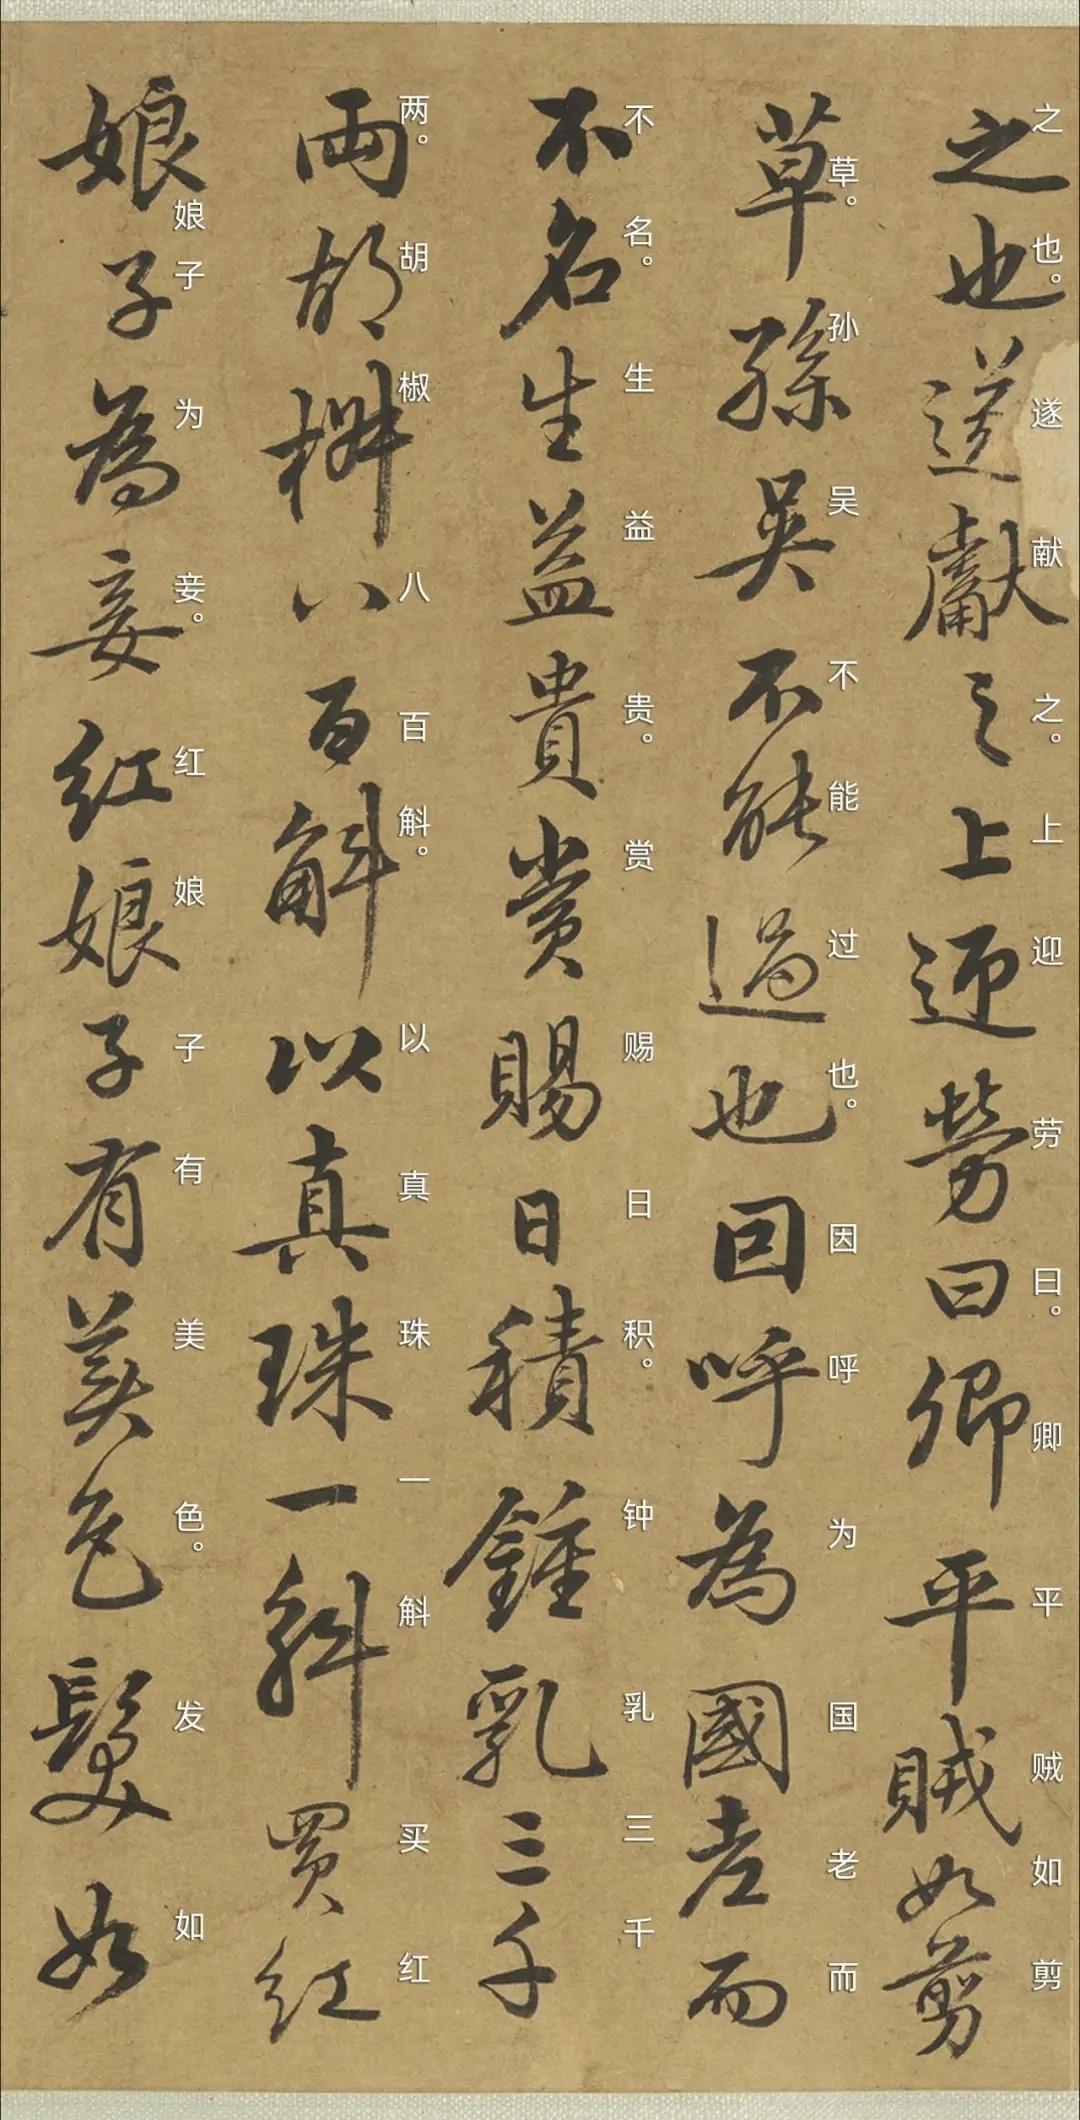 之也送獻之上迎勞曰卿平賊如剪
之也。遂献之。上迎劳曰。卿平贼如剪
草孫吳不能過也回呼為國老而
草。孙吴不能过也。因呼为国老而
不名生益貴賞賜日積鍾乳三千
不名。生益贵。赏赐日积。钟乳三千
兩胡椒八百斛以真珠一斛買紅
两。胡椒八百斛。以真珠一斛买红
娘子為妾紅娘子有美色髮如
娘子为妾。红娘子有美色。发如